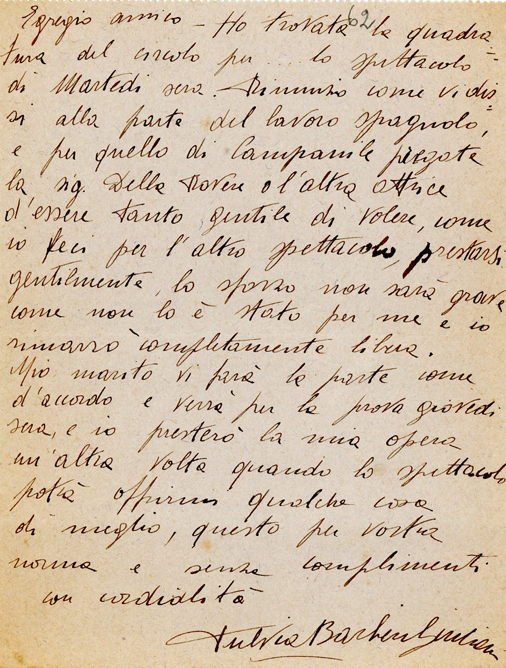 Egregio amico - Ho trovata la quadra=
62
tura del circolo per ... lo spettacolo
di Martedi sera. Rinunzio come vi dis=
si alla parte del lavoro spagnolo,
e per quello di Campanile pregate
la sig. Della Rovere o l'altra attrice
d'essere tanto gentile di volere, come
io feci per l'altro spettacolo, prestarsi
gentilmente, lo sforzo non sarà grave
come non lo è stato per me e io
rimarrò completamente libera.
Mio marito vi farà la parte come
d'accordo e verrà per la prova giovedi
sera, e io presterò la mia opera
un'altra volta quando lo spettacolo
potrà offrirmi qualche cosa
di meglio, questo per vostra
norma e senza complimenti
con cordialità
Fulvia Barberi